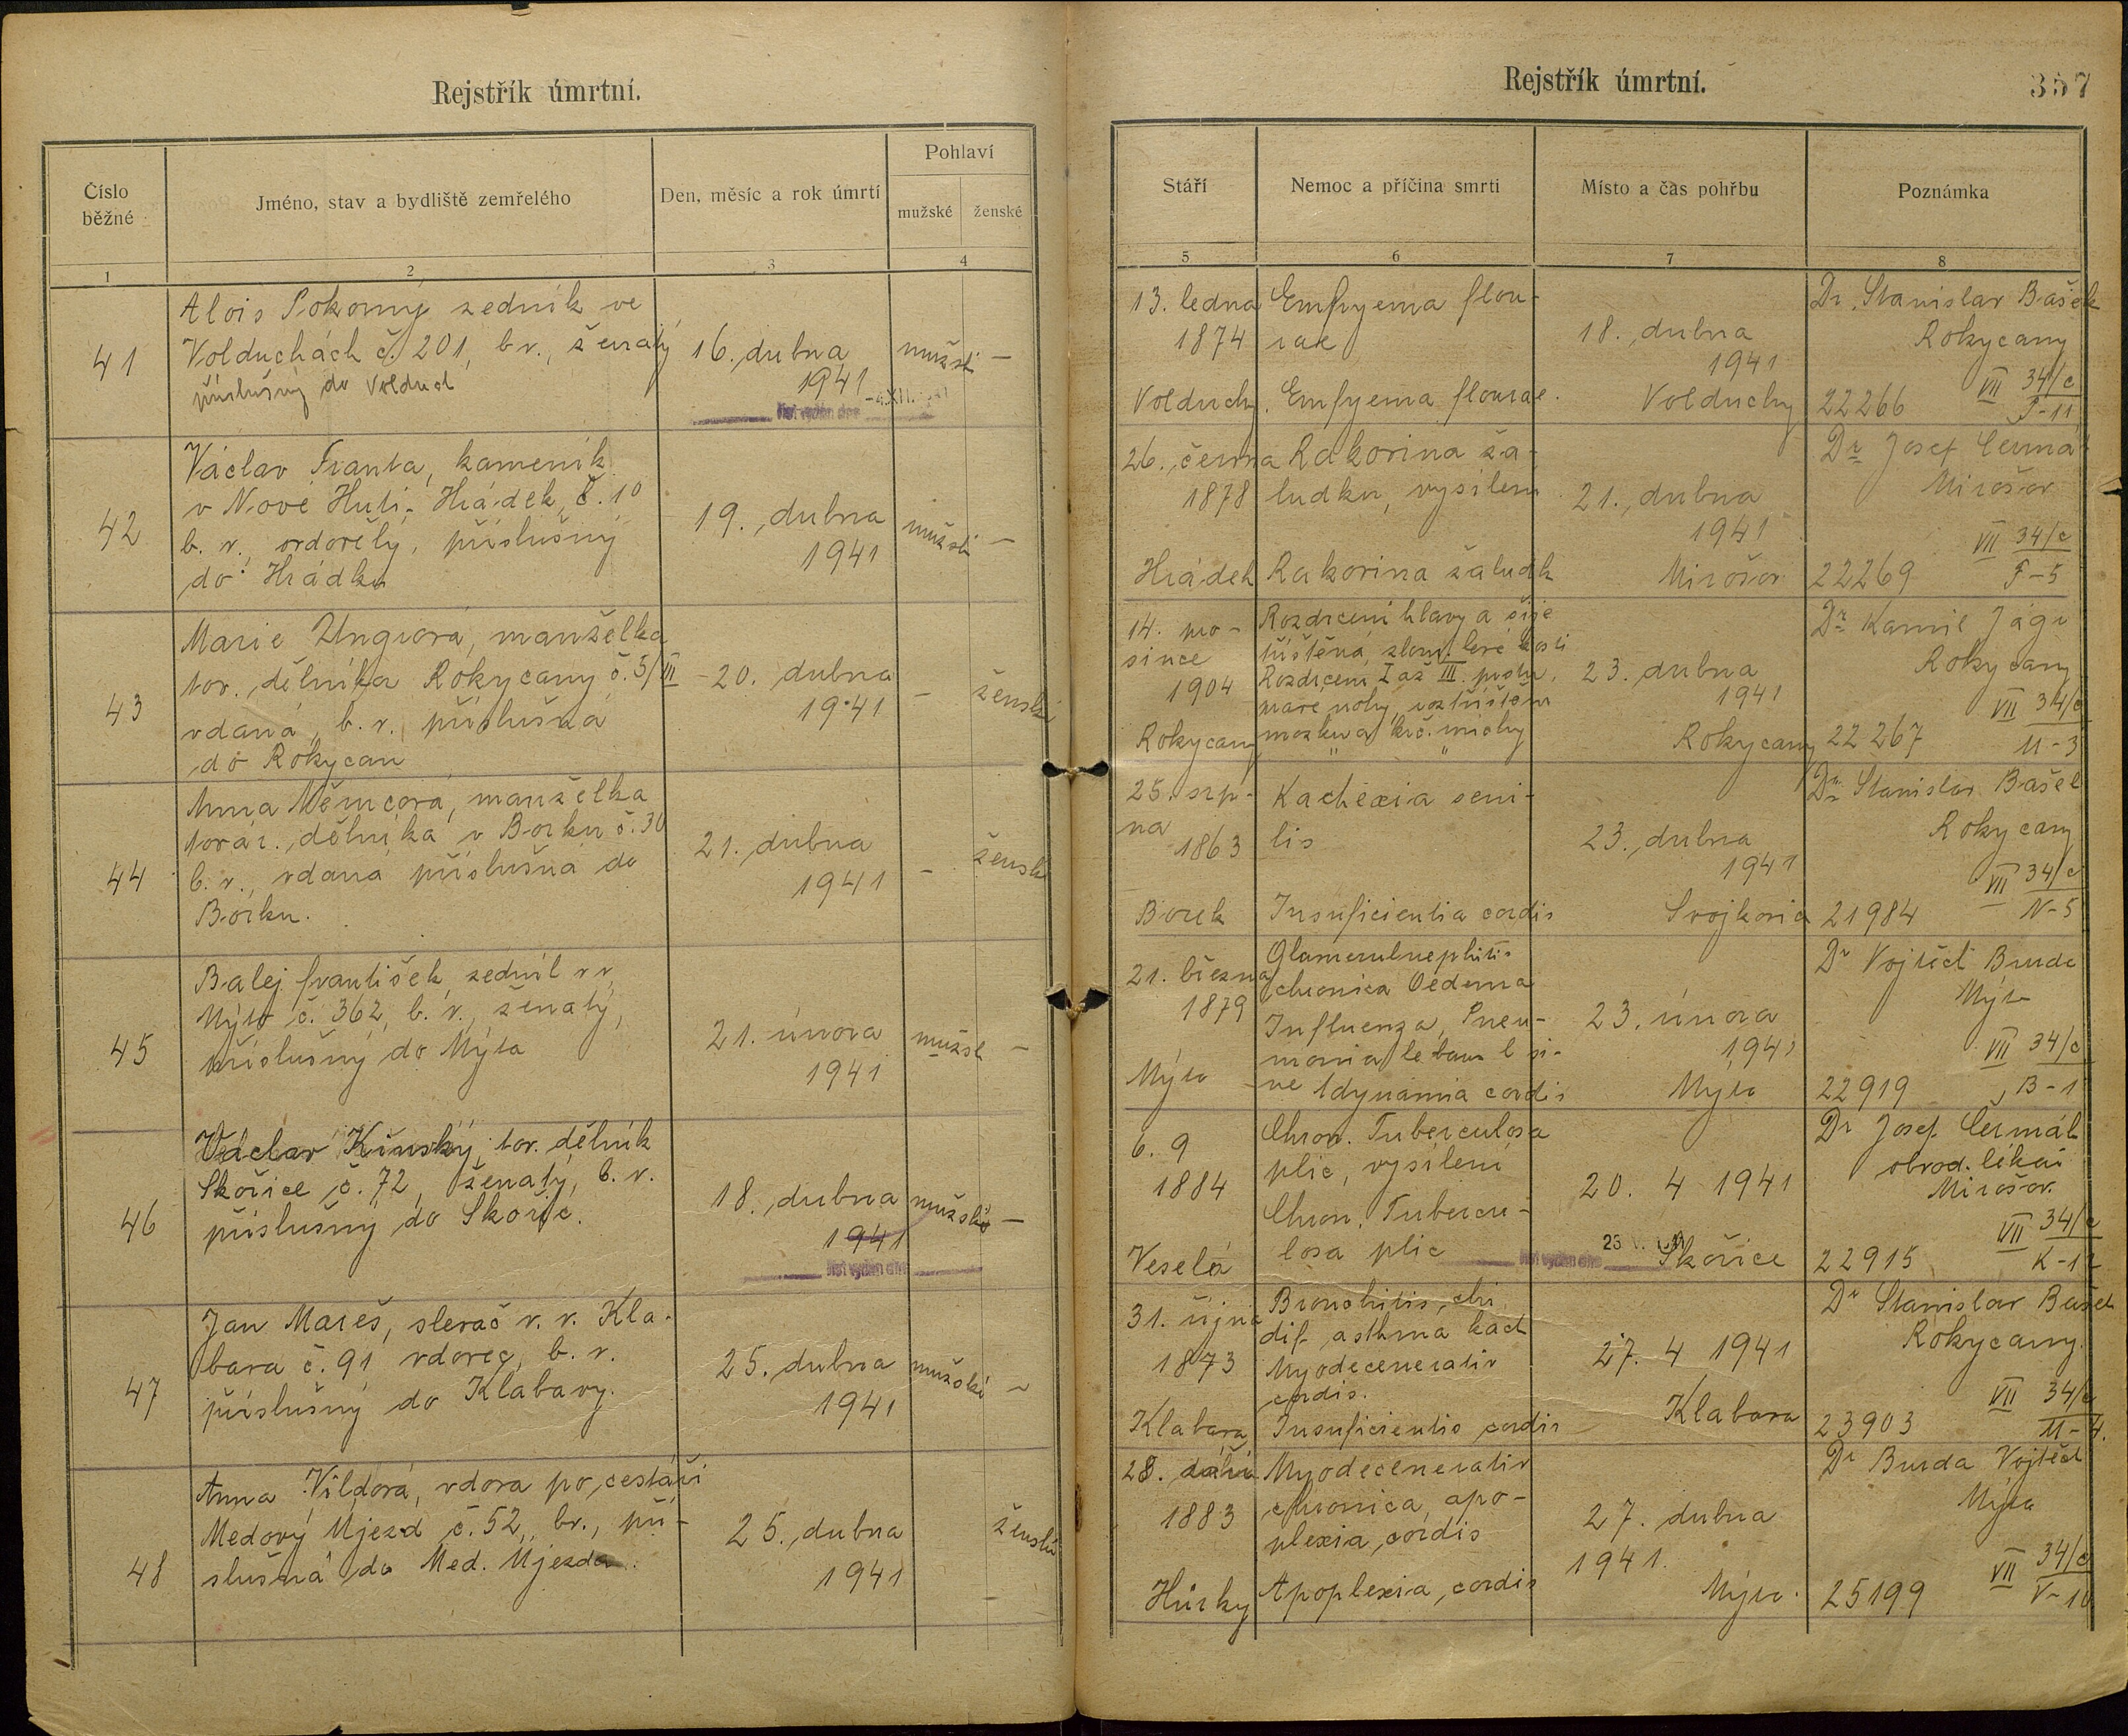 Rejstřík úmrtní.
Číslo běžné
Jméno, stav a bydliště zemřelého
Den, měsíc a rok úmrtí
Pohlaví
mužské
ženské
1
2
3
4
41
Alois Pokorný zedník ve
Volduchách č. 201, b.v., ženatý
příslušný do Volduch
16. dubna
1941
mužsk
–
list vydán dne
42
Václav Franta, kameník
v Nové Huti-Hrádek, č. 10
b. v., ovdovělý, příslušný
do Hrádku
19. dubna
1941
mužsk
–
43
Marie Ungrová, manželka
tov. dělníka Rokycany č. 5/III
vdaná, b. v. příslušná
do Rokycan
20. dubna
1941
–
žensk
44
Anna Němcová, manželka
továr. dělníka v Borku č. 30
b. v., vdaná příslušná do
Borku.
21. dubna
1941
–
žensk
45
Balej František zedník v v.
Mýto č. 362, b. v., ženatý,
příslušný do Mýta
21. února
1941
mužsk
–
46
Václav Kinský, tov. dělník
Skořice č. 72, ženatý, b. v.
příslušný do Skořic.
18. dubna
1941
mužské
–
list vydán dne
47
Jan Mareš, slevač v. v. Kla-
bava č. 91 vdovec, b. v.
příslušný do Klabavy.
25. dubna
1941
mužské
–
48
Anna Vildová, vdova po cestáři
Medový Újezd č. 52, bv., pří-
slušná do Med. Újezda.
25. dubna
1941
–
ženské
Rejstřík úmrtní.
357
Stáří
Nemoc a příčina smrti
Místo a čas pohřbu
Poznámka
5
6
7
8
13. ledna
1874
Volduchy
Empyema pleu-
rae
Empyema pleurae.
18. dubna
1941
Volduchy
Dr. Stanislav Bašek
Rokycany
VII 34/c
22266
P-11
26. června
1878
Hrádek
Rakovina ža-
ludku, vysílení
Rakovina žaludk
21. dubna
1941
Mirošov
Dr Josef Čermá
Mirošov
VII 34/c
22269
F-5
14. pro-
since
1904
Rokycany
Rozdrcení hlavy a šíje
tříštěná, zlom. levé kosti
Rozdrcení I až III. prstu
mozku a krč. míchy
23. dubna
1941
Rokycany
Dr Kamil Jägr
Rokycany
VII 34/c
22267
U-3
25. srp-
na
1863
Borek
Kachexia seni-
lis
Insuficientia cordis
23. dubna
1941
Svojkovic
Dr Stanislav Bašek
Rokycany
VII 34/c
21984
N-5
21. března
1879
Mýto
Glomerulnephitis
chronica Oedema
Influenza, Pneu-
monia
Adynamia cordis
23. února
1941
Mýto
Dr Vojtěch Burda
Mýto
VII 34/c
22919
B-1
6. 9
1884
Veselá
Chron. Tuberculosa
plic, vysílení
Chron. Tubercu-
losa plic
20. 4 1941
Skořice
list vydán dne
Dr Josef Čermák
obvod. lékař
Mirošov.
VII 34/c
22915
K-12
31. října
1873
Klabava
Bronchitis, chr.
dif. asthma kach
Myodecenerativ
cordis.
Insuficientio cordis
27. 4 1941
Klabava
Dr Stanislav Bašek
Rokycany.
VII 34/c
23903
M-4.
28. září
1883
Hůrky
Myodecenerativ
chronica, apo-
plexia, cordis
Apoplexia, cordis
27. dubna
1941.
Mýto.
Dr Burda Vojtěch
Mýto
VII 34/c
25199
V-10